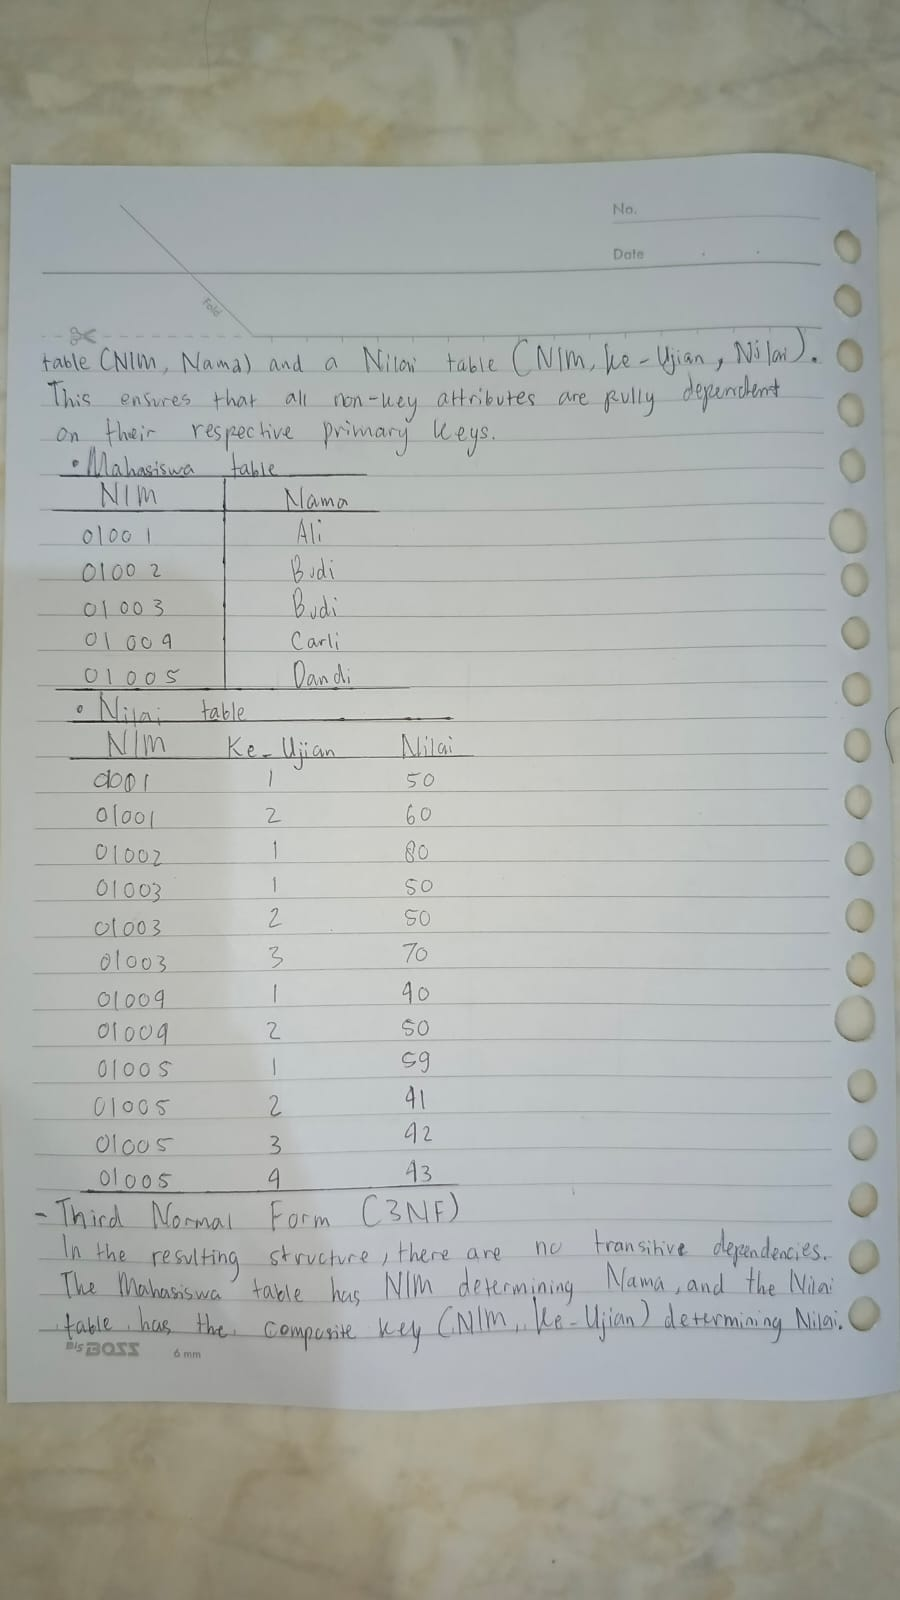 No.
Date
Fold
table (NIM, Nama) and a Nilai table (NIM, Ke-Ujian, Nilai).
This ensures that all non-key attributes are fully dependent
on their respective primary keys.
• Mahasiswa table
NIM Nama
01001 Ali
01002 Budi
01003 Budi
01004 Carli
01005 Dandi
• Nilai table
NIM Ke-Ujian Nilai
01001 1 50
01001 2 60
01002 1 80
01003 1 50
01003 2 50
01003 3 70
01004 1 40
01004 2 50
01005 1 59
01005 2 41
01005 3 42
01005 4 43
- Third Normal Form (3NF)
In the resulting structure, there are no transitive dependencies.
The Mahasiswa table has NIM determining Nama, and the Nilai
table has the composite key (NIM, Ke-Ujian) determining Nilai.
BOSS 6 mm